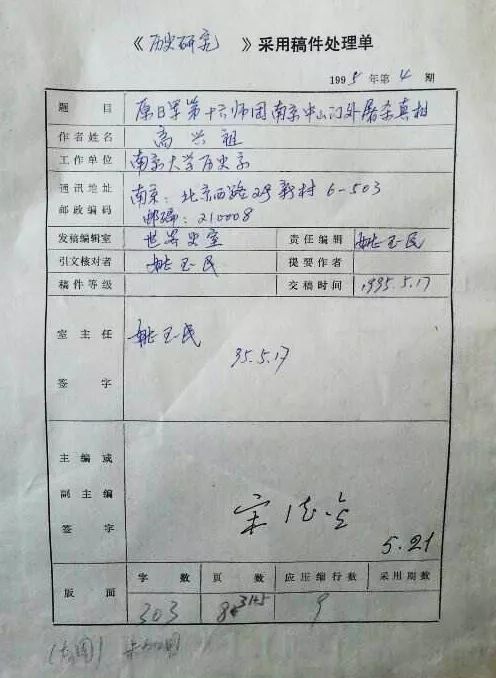 《历史研究》采用稿件处理单
1995年第4期
题目 原日军第十六师团南京中山门外屠杀真相
作者姓名 高兴祖
工作单位 南京大学历史系
通讯地址 南京:北京西路2号新村6-503
邮政编码 邮编:210008
发稿编辑室 世界史室 责任编辑 姚玉民
引文核对者 姚玉民 提要作者
稿件等级 交稿时间 1995.5.17
室主任 姚玉民
签字 95.5.17
主编或
副主编 宋德金
签字 5.21
版面 字数 页数 应压缩行数 采用期数
303 8 3145 9